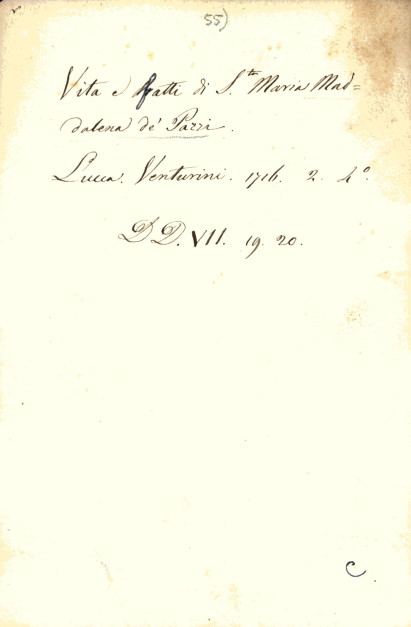 55)
Vita e fatti di S.ta Maria Mad=
dalena de' Pazzi.
Lucca. Venturini. 1716. 2. 4°.
DD. VII. 19. 20.
C